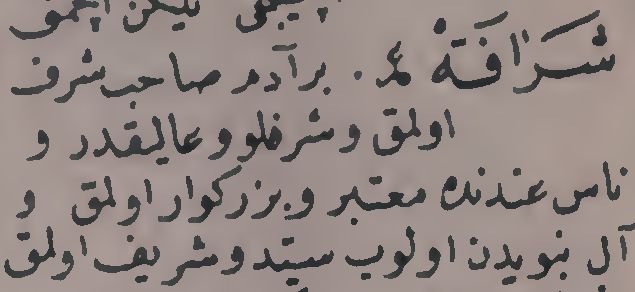 ایتمق
شَرَافَةْ ع. برآدم صاحب شرف
اولمق و شرفلو و عالیقدر و
ناس عندنده معتبر و بزرکوار اولمق و
آل نبویدن اولوب سیّد و شریف اولمق